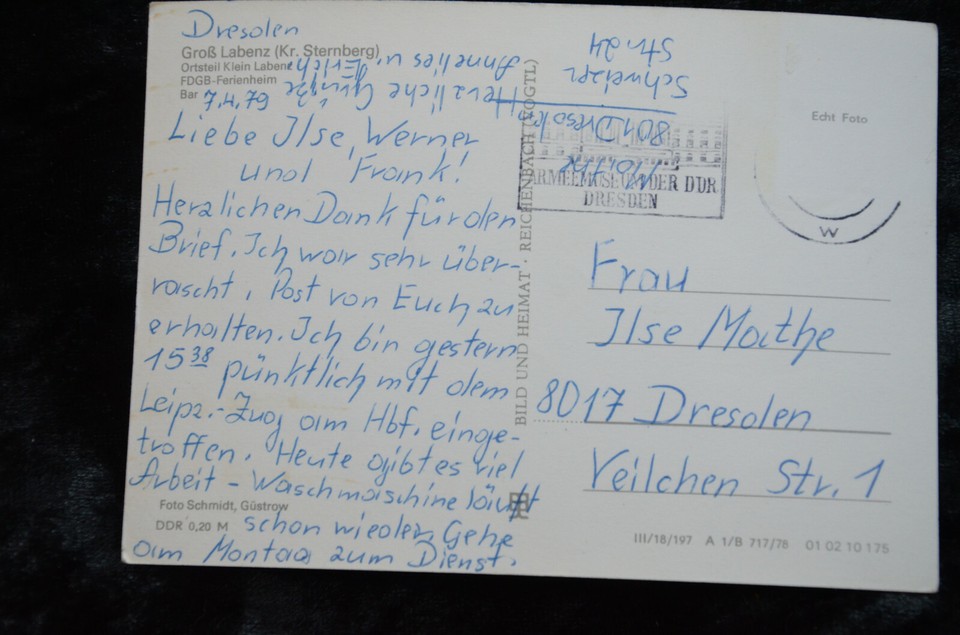 Dresden
Groß Labenz (Kr. Sternberg)
Ortsteil Klein Labenz
FDGB-Ferienheim
Bar
7.4.79
Liebe Ilse, Werner
und Frank!
Herzlichen Dank für den
Brief. Ich war sehr über-
rascht, Post von Euch zu
erhalten. Ich bin gestern
15³⁸ pünktlich mit dem
Leipz.-Zug am Hbf. einge-
troffen. Heute gibt es viel
Arbeit - Waschmaschine läuft
schon wieder. Gehe
am Montag zum Dienst.
Herzliche Grüße
Annelies u. Erich
Foto Schmidt, Güstrow
DDR 0,20 M
BILD UND HEIMAT · REICHENBACH (VOGTL)
801 Dresden
Schweizer
Str. 24
ARMEEMUSEUM DER DDR
DRESDEN
Echt Foto
w
Frau
Ilse Mathe
8017 Dresden
Veilchen Str. 1
III/18/197 A 1/B 717/78 01 02 10 175